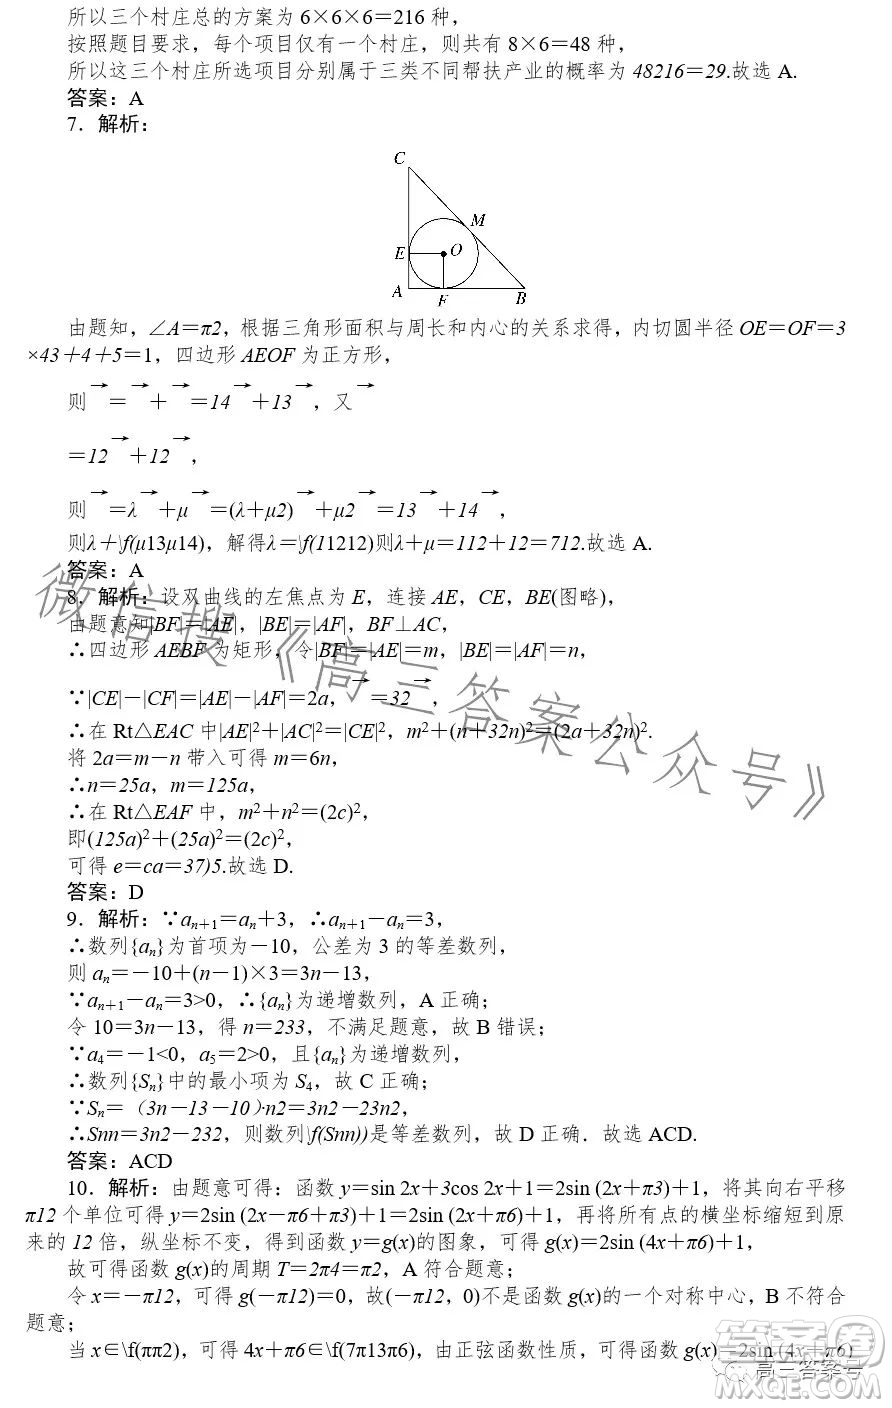 所以三个村庄总的方案为 6×6×6=216 种，
按照题目要求，每个项目仅有一个村庄，则共有 8×6=48 种，
所以这三个村庄所选项目分别属于三类不同帮扶产业的概率为 48216=29.故选 A.
答案：A
7．解析：
C
M
E
O
A
F
B
由题知，∠A=π2，根据三角形面积与周长和内心的关系求得，内切圆半径 OE=OF=3
×43+4+5=1，四边形 AEOF 为正方形，
则→=→+→=14→+13→，又→
=12→+12→，
则→=λ→+μ→=(λ+μ2)→+μ2→=13→+14→，
则λ+\f(μ13μ14)，解得λ=\f(11212)则λ+μ=112+12=712.故选 A.
答案：A
8．解析：设双曲线的左焦点为 E，连接 AE，CE，BE(图略)，
由题意知|BF|=|AE|，|BE|=|AF|，BF⊥AC，
∴四边形 AEBF 为矩形，令|BF|=|AE|=m，|BE|=|AF|=n，
∵|CE|－|CF|=|AE|－|AF|=2a，→=32→，
∴在 Rt△EAC 中|AE|²+|AC|²=|CE|²，m²+(n+32n)²=(2a+32n)².
将 2a=m－n 带入可得 m=6n，
∴n=25a，m=125a，
∴在 Rt△EAF 中，m²+n²=(2c)²，
即(125a)²+(25a)²=(2c)²，
可得 e=ca=37)5.故选 D.
答案：D
9．解析：∵aₙ₊₁=aₙ+3，∴aₙ₊₁－aₙ=3，
∴数列{aₙ}为首项为－10，公差为 3 的等差数列，
则 aₙ=－10+(n－1)×3=3n－13，
∵aₙ₊₁－aₙ=3>0，∴{aₙ}为递增数列，A 正确；
令 10=3n－13，得 n=233，不满足题意，故 B 错误；
∵a₄=－1<0，a₅=2>0，且{aₙ}为递增数列，
∴数列{Sₙ}中的最小项为 S₄，故 C 正确；
∵Sₙ=（3n－13－10）·n2=3n2－23n2，
∴Snn=3n2－232，则数列\f(Snn))是等差数列，故 D 正确．故选 ACD.
答案：ACD
10．解析：由题意可得：函数 y=sin 2x+3cos 2x+1=2sin (2x+π3)+1，将其向右平移
π12 个单位可得 y=2sin (2x－π6+π3)+1=2sin (2x+π6)+1，再将所有点的横坐标缩短到原
来的 12 倍，纵坐标不变，得到函数 y=g(x)的图象，可得 g(x)=2sin (4x+π6)+1，
故可得函数 g(x)的周期 T=2π4=π2，A 符合题意；
令 x=－π12，可得 g(－π12)=0，故(－π12，0)不是函数 g(x)的一个对称中心，B 不符合
题意；
当 x∈\f(ππ2)，可得 4x+π6∈\f(7π13π6)，由正弦函数性质，可得函数 g(x)=2sin (4x+π6)
微信搜《高三答案公众号》
高三答案号
答案圈
MXQE.COM